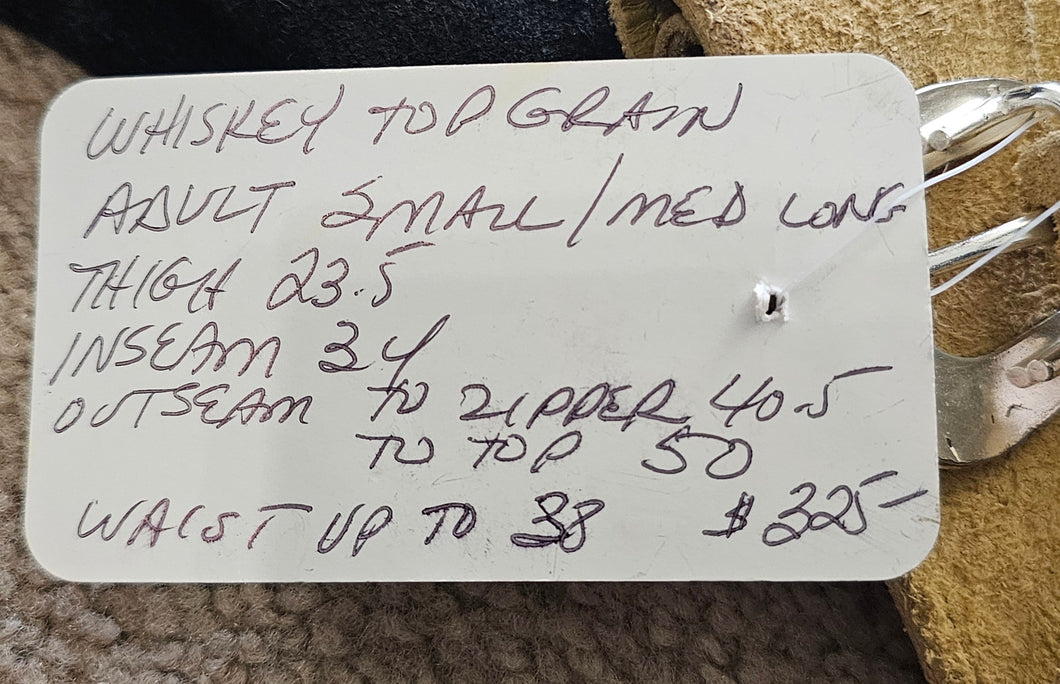 WHISKEY TOP GRAIN
ADULT SMALL/MED LONG
THIGH 23.5
INSEAM 34
OUTSEAM TO ZIPPER 40.5
TO TOP 50
WAIST UP TO 38 $325-